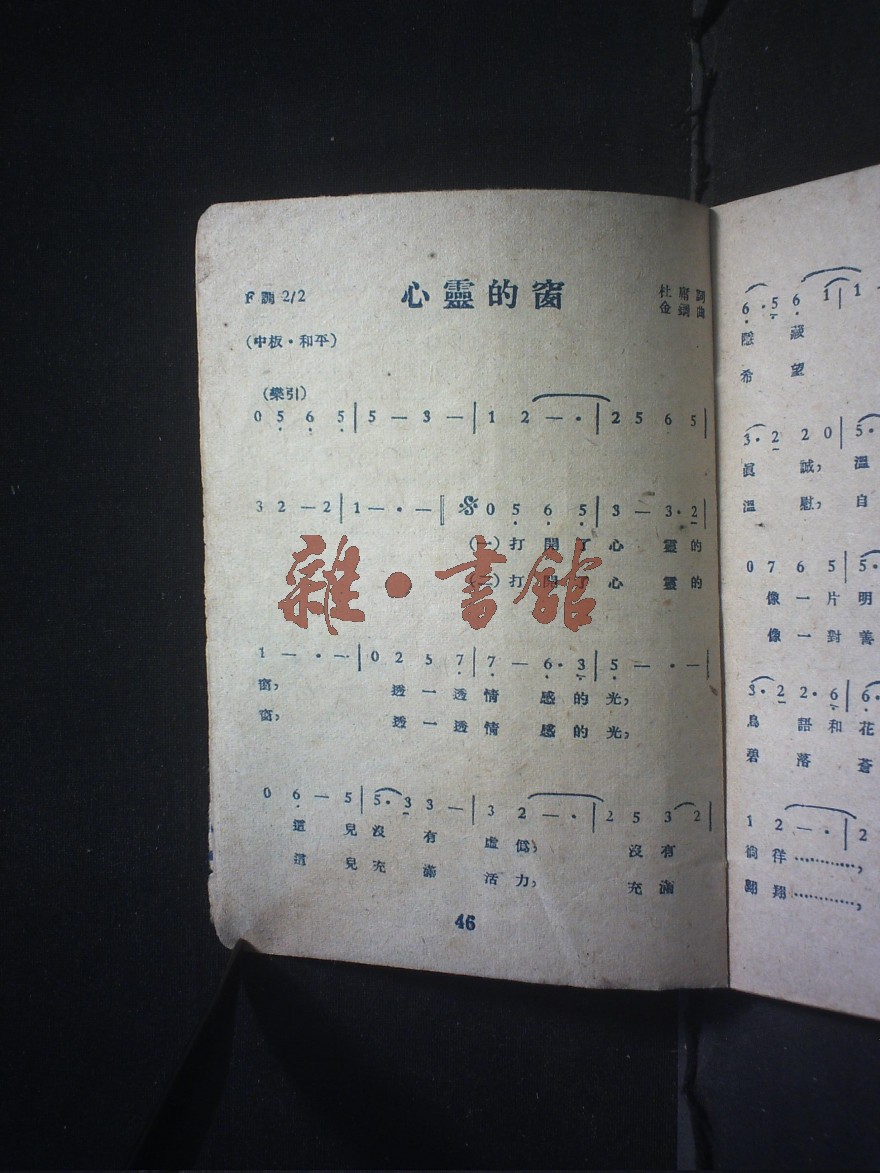 心靈的窗
F調 2/2
杜庸詞
金鋼曲
(中板·和平)
(樂引)
0 5 6 5 | 5 — 3 — | 1 2 — · | 2 5 6 5 |
3 2 — 2 | 1 — · — || 𝄋 0 5 6 5 | 3 — 3· 2 |
(一) 打 開 了 心 靈 的
(二) 打 開 了 心 靈 的
雜·書館
1 — · — | 0 2 5 7 | 7 — 6· 3 | 5 — · — |
窗, 透 一 透 情 感 的 光,
窗, 透 一 透 情 感 的 光,
0 6 — 5 | 5· 3 3 — | 3 2 — · | 2 5 3 2 |
這 兒 沒 有 虛 僞, 沒 有
這 兒 充 滿 活 力, 充 滿
46
6 · 5 6 1 1
隱 藏
希 望
3· 2 2 0 | 5·
眞 誠, 溫
溫 慰, 自
0 7 6 5 | 5·
像 一 片 明
像 一 對 善
3· 2 2· 6 | 6·
鳥 語 和 花
碧 落 蒼
1 2 — · | 2
徜 徉…………,
翺 翔…………,